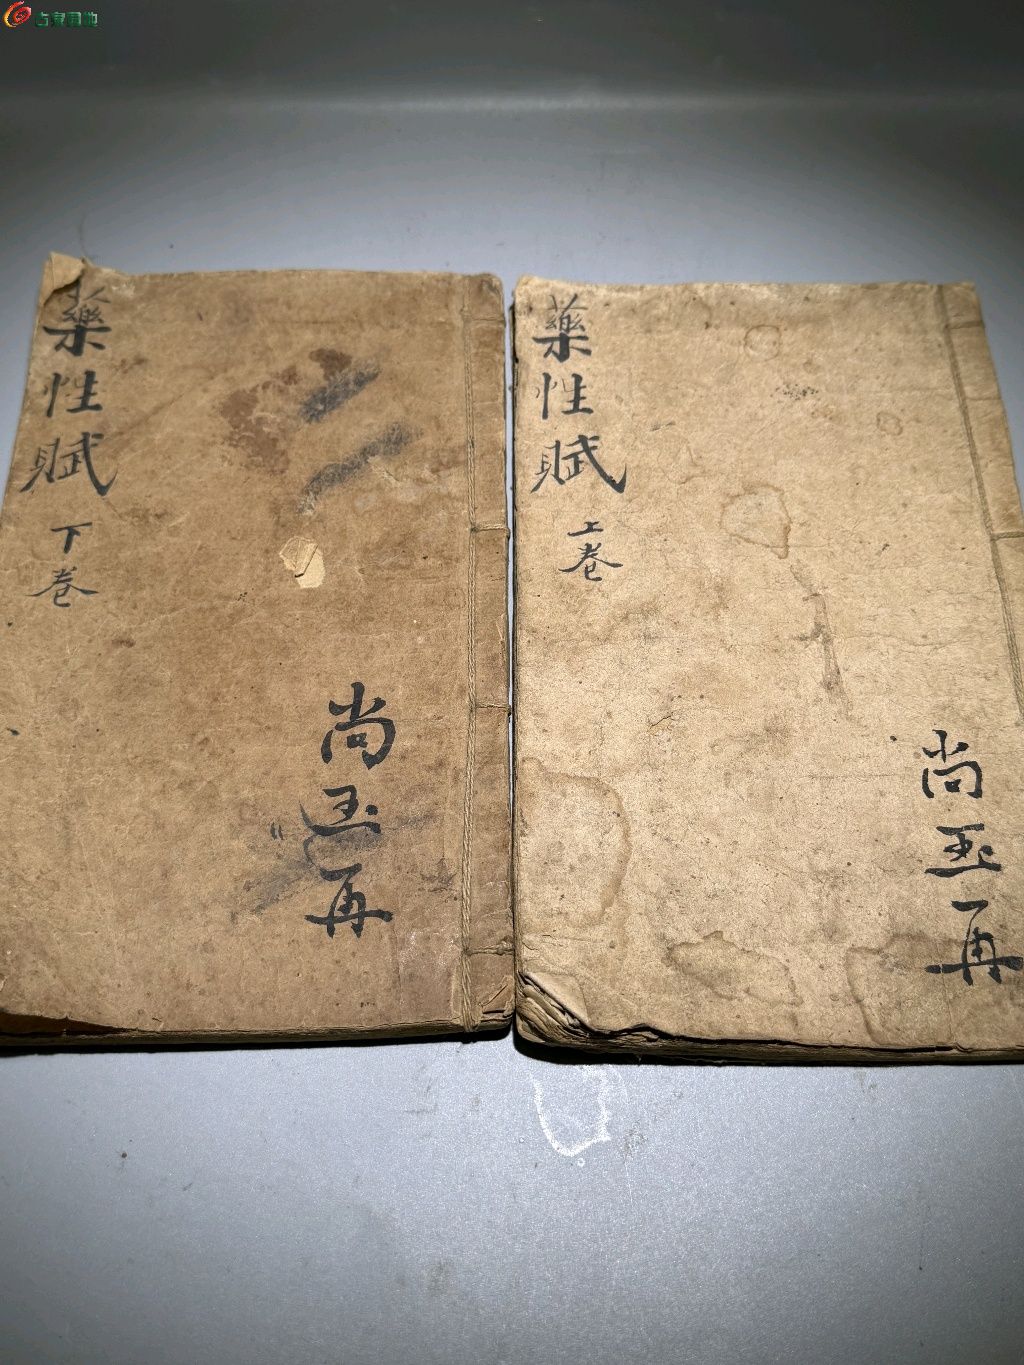 占泉园地
藥性賦
下卷
尚玉再
藥性賦
上卷
尚玉再